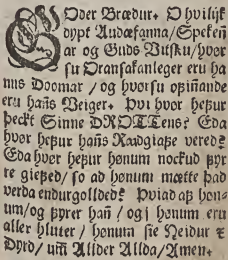 GOder Brædur. O hvilijk
dypt Audæfanna/Spekeñ
ar og Guds Vitsku/hvør
su Oransakanleger eru ha
nns Doomar / og hvørsu ofziñande
eru hañs Veiger. Þvi hvør hefur
þeckt Sinne DROTTens? Eda
hvør hefur hañs Raadgiafe vered?
Eda hvør hefur hønum nockud fyr
re giefed/ so ad hønum mætte þad
verda endurgollded? Þviad af høn-
um/og fyrer hañ / og j hønum eru
aller hluter / hønum sie Heidur &
Dyrd/ um Allder Allda/Amen.